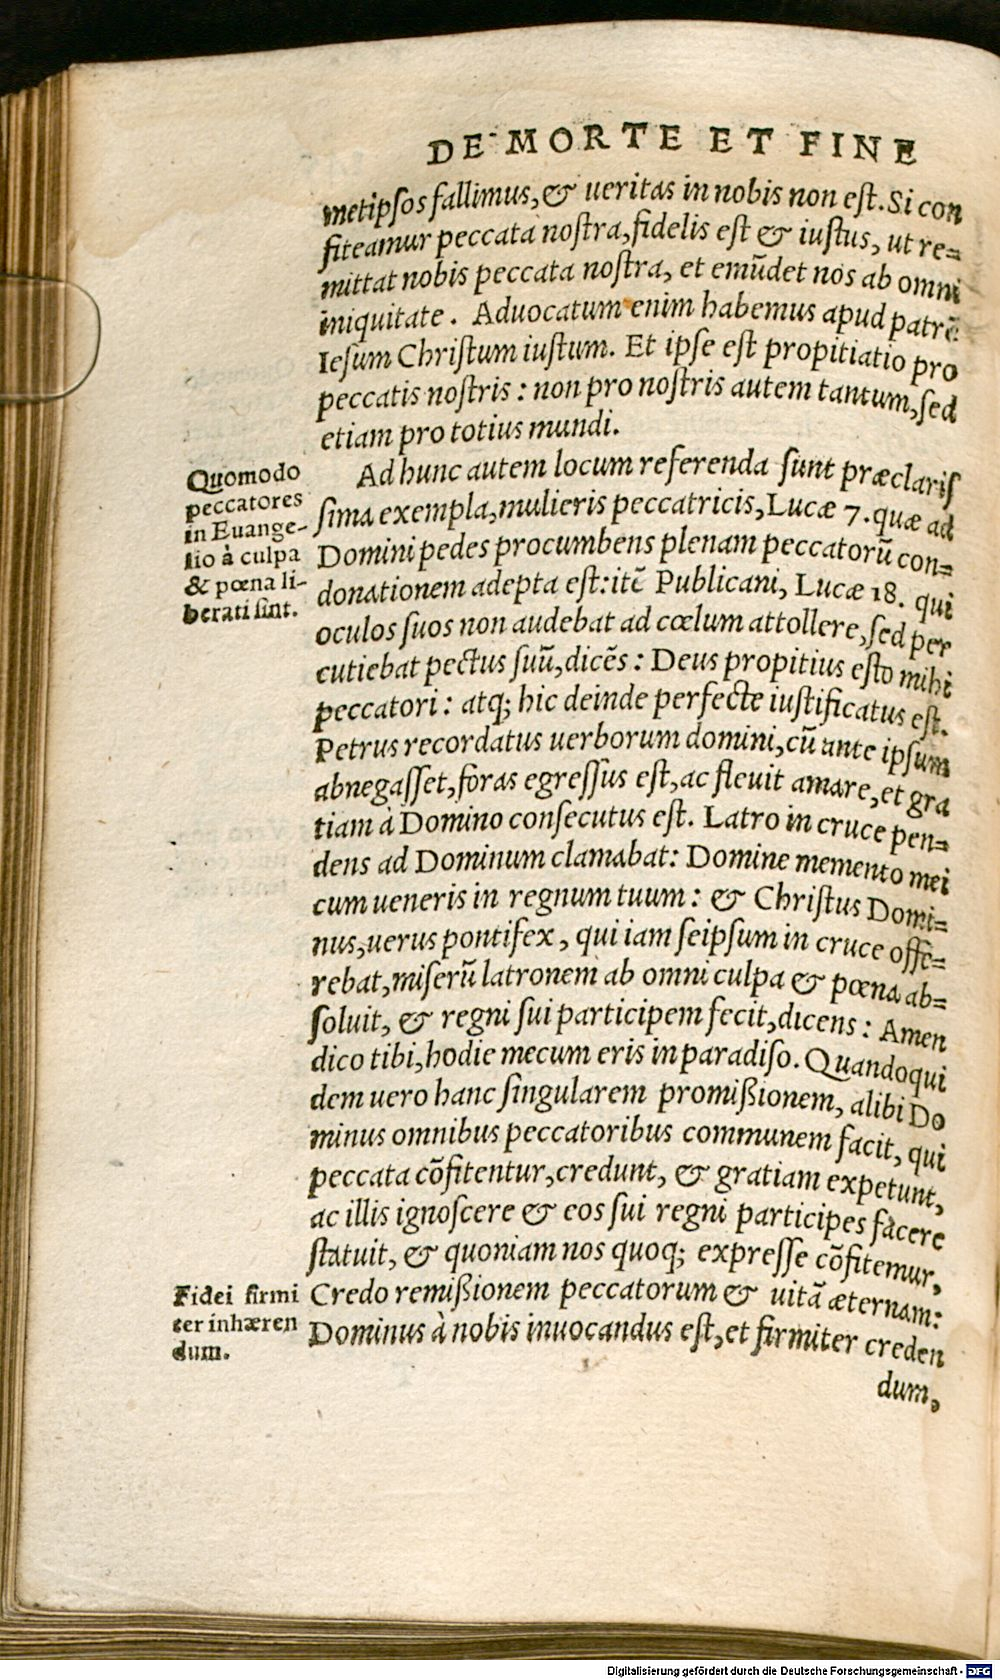 DE MORTE ET FINE
metipsos fallimus, & ueritas in nobis non est. Si con
fiteamur peccata nostra, fidelis est & iustus, ut re=
mittat nobis peccata nostra, et emũdet nos ab omni
iniquitate. Aduocatum enim habemus apud patrẽ
Iesum Christum iustum. Et ipse est propitiatio pro
peccatis nostris: non pro nostris autem tantum, sed
etiam pro totius mundi.
Quomodo
peccatores
in Euange-
lio à culpa
& pœna li-
berati sint.
Ad hunc autem locum referenda sunt præclaris
sima exempla, mulieris peccatricis, Lucæ 7. quæ ad
Domini pedes procumbens plenam peccatorũ con=
donationem adepta est: itẽ Publicani, Lucæ 18. qui
oculos suos non audebat ad cœlum attollere, sed per
cutiebat pectus suũ, dicẽs: Deus propitius esto mihi
peccatori: atq; hic deinde perfecte iustificatus est.
Petrus recordatus uerborum domini, cũ ante ipsum
abnegasset, foras egressus est, ac fleuit amare, et gra
tiam à Domino consecutus est. Latro in cruce pen=
dens ad Dominum clamabat: Domine memento mei
cum ueneris in regnum tuum: & Christus Domi=
nus, uerus pontifex, qui iam seipsum in cruce offe=
rebat, miserũ latronem ab omni culpa & pœna ab=
soluit, & regni sui participem fecit, dicens: Amen
dico tibi, hodie mecum eris in paradiso. Quandoqui
dem uero hanc singularem promißionem, alibi Do
minus omnibus peccatoribus communem facit, qui
peccata cõfitentur, credunt, & gratiam expetunt,
ac illis ignoscere & eos sui regni participes facere
statuit, & quoniam nos quoq; expresse cõfitemur,
Credo remißionem peccatorum & uitã æternam:
Dominus à nobis inuocandus est, et firmiter creden
Fidei firmi
ter inhæren
dum.
dum,
Digitalisierung gefördert durch die Deutsche Forschungsgemeinschaft - DFG